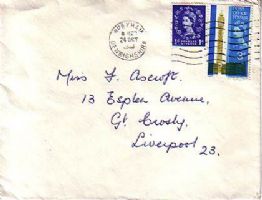 24 OCT
Miss F. Ascroft.
13 Esplen Avenue,
Gt Crosby,
Liverpool
23.